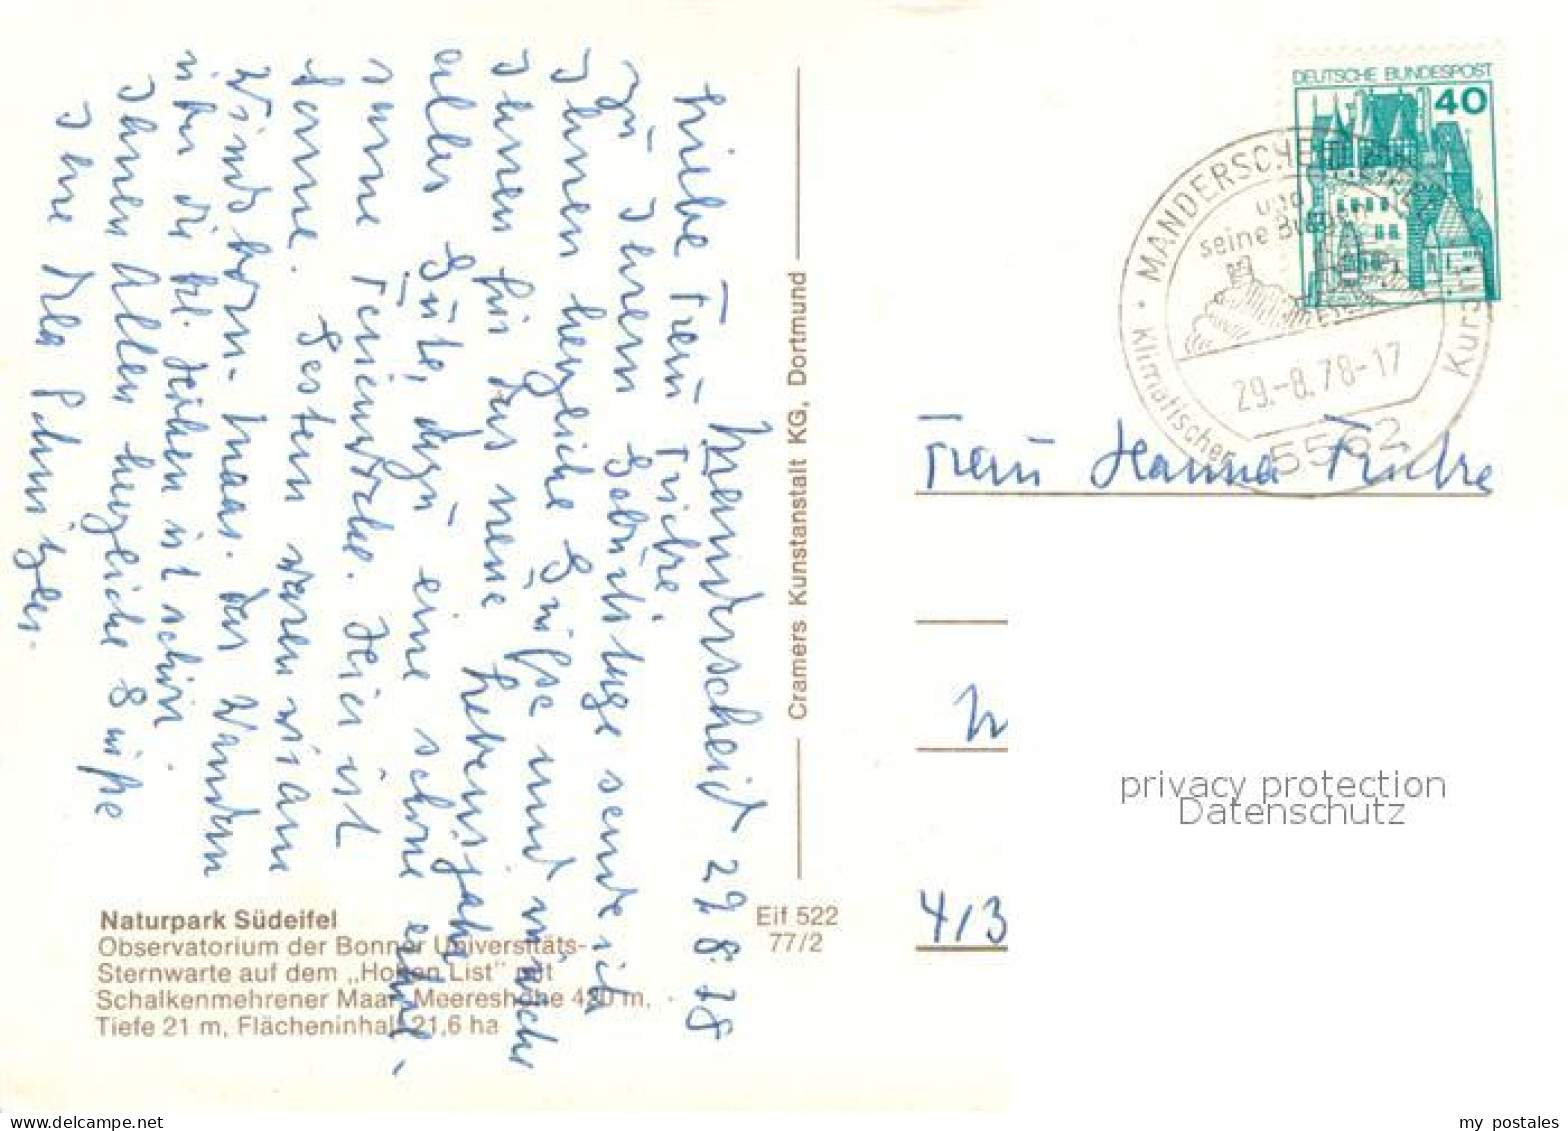 Manderscheid 29.8.78
Liebe Frau Fricke,
zu Ihrem Geburtstage sende ich
Ihnen herzliche Grüße und wünsche
Ihnen für das neue Lebensjahr
alles Gute, dazu eine schöne
sonne Ferienwoche. Hier ist
Sonne. Gestern waren wir am
Windsborn-Maar. Das Wandern
in der Höhen ist schön.
Ihnen Allen herzliche Grüße
Ihre
Naturpark Südeifel
Observatorium der Bonner Universitäts-
Sternwarte auf dem „Hohen List" mit
Schalkenmehrener Maar, Meereshöhe 420 m,
Tiefe 21 m, Flächeninhalt 21,6 ha
Eif 522
77/2
Cramers Kunstanstalt KG, Dortmund
DEUTSCHE BUNDESPOST
40
MANDERSCHEID
und
seine Burgen
29.-8.78-17
5562
Klimatischer Kurort
Frau Hanna Fricke
4/3
privacy protection
Datenschutz
www.delcampe.net
my_postales